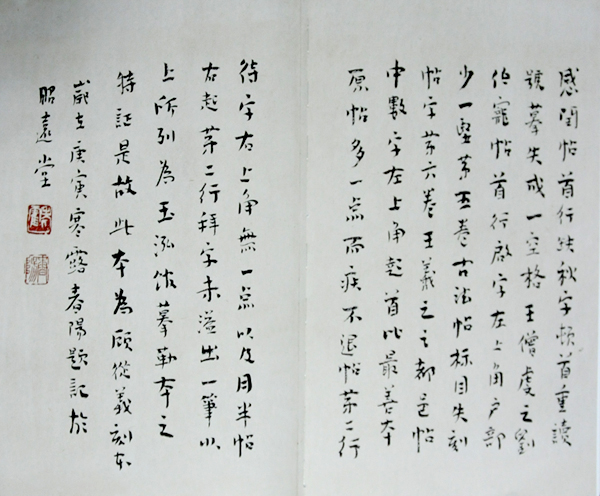 感閏帖首行秋字頓首重讀
號摹失成一空格王僧虔之劉
伯寵帖首行啟字左上角戶部
少一竪第五卷古法帖标目失刻
帖字第六卷王羲之之都邑帖
中數字左上角起首比最善本
原帖多一点而疾不退帖第二行
待字右上角無一点以及月半帖
右起第二行拜字未溢出一筆以
上所列為玉泓馆摹勒本之
特証是故此本為顾從義刻本
歲在庚寅寒露春陽題記於
昭遠堂